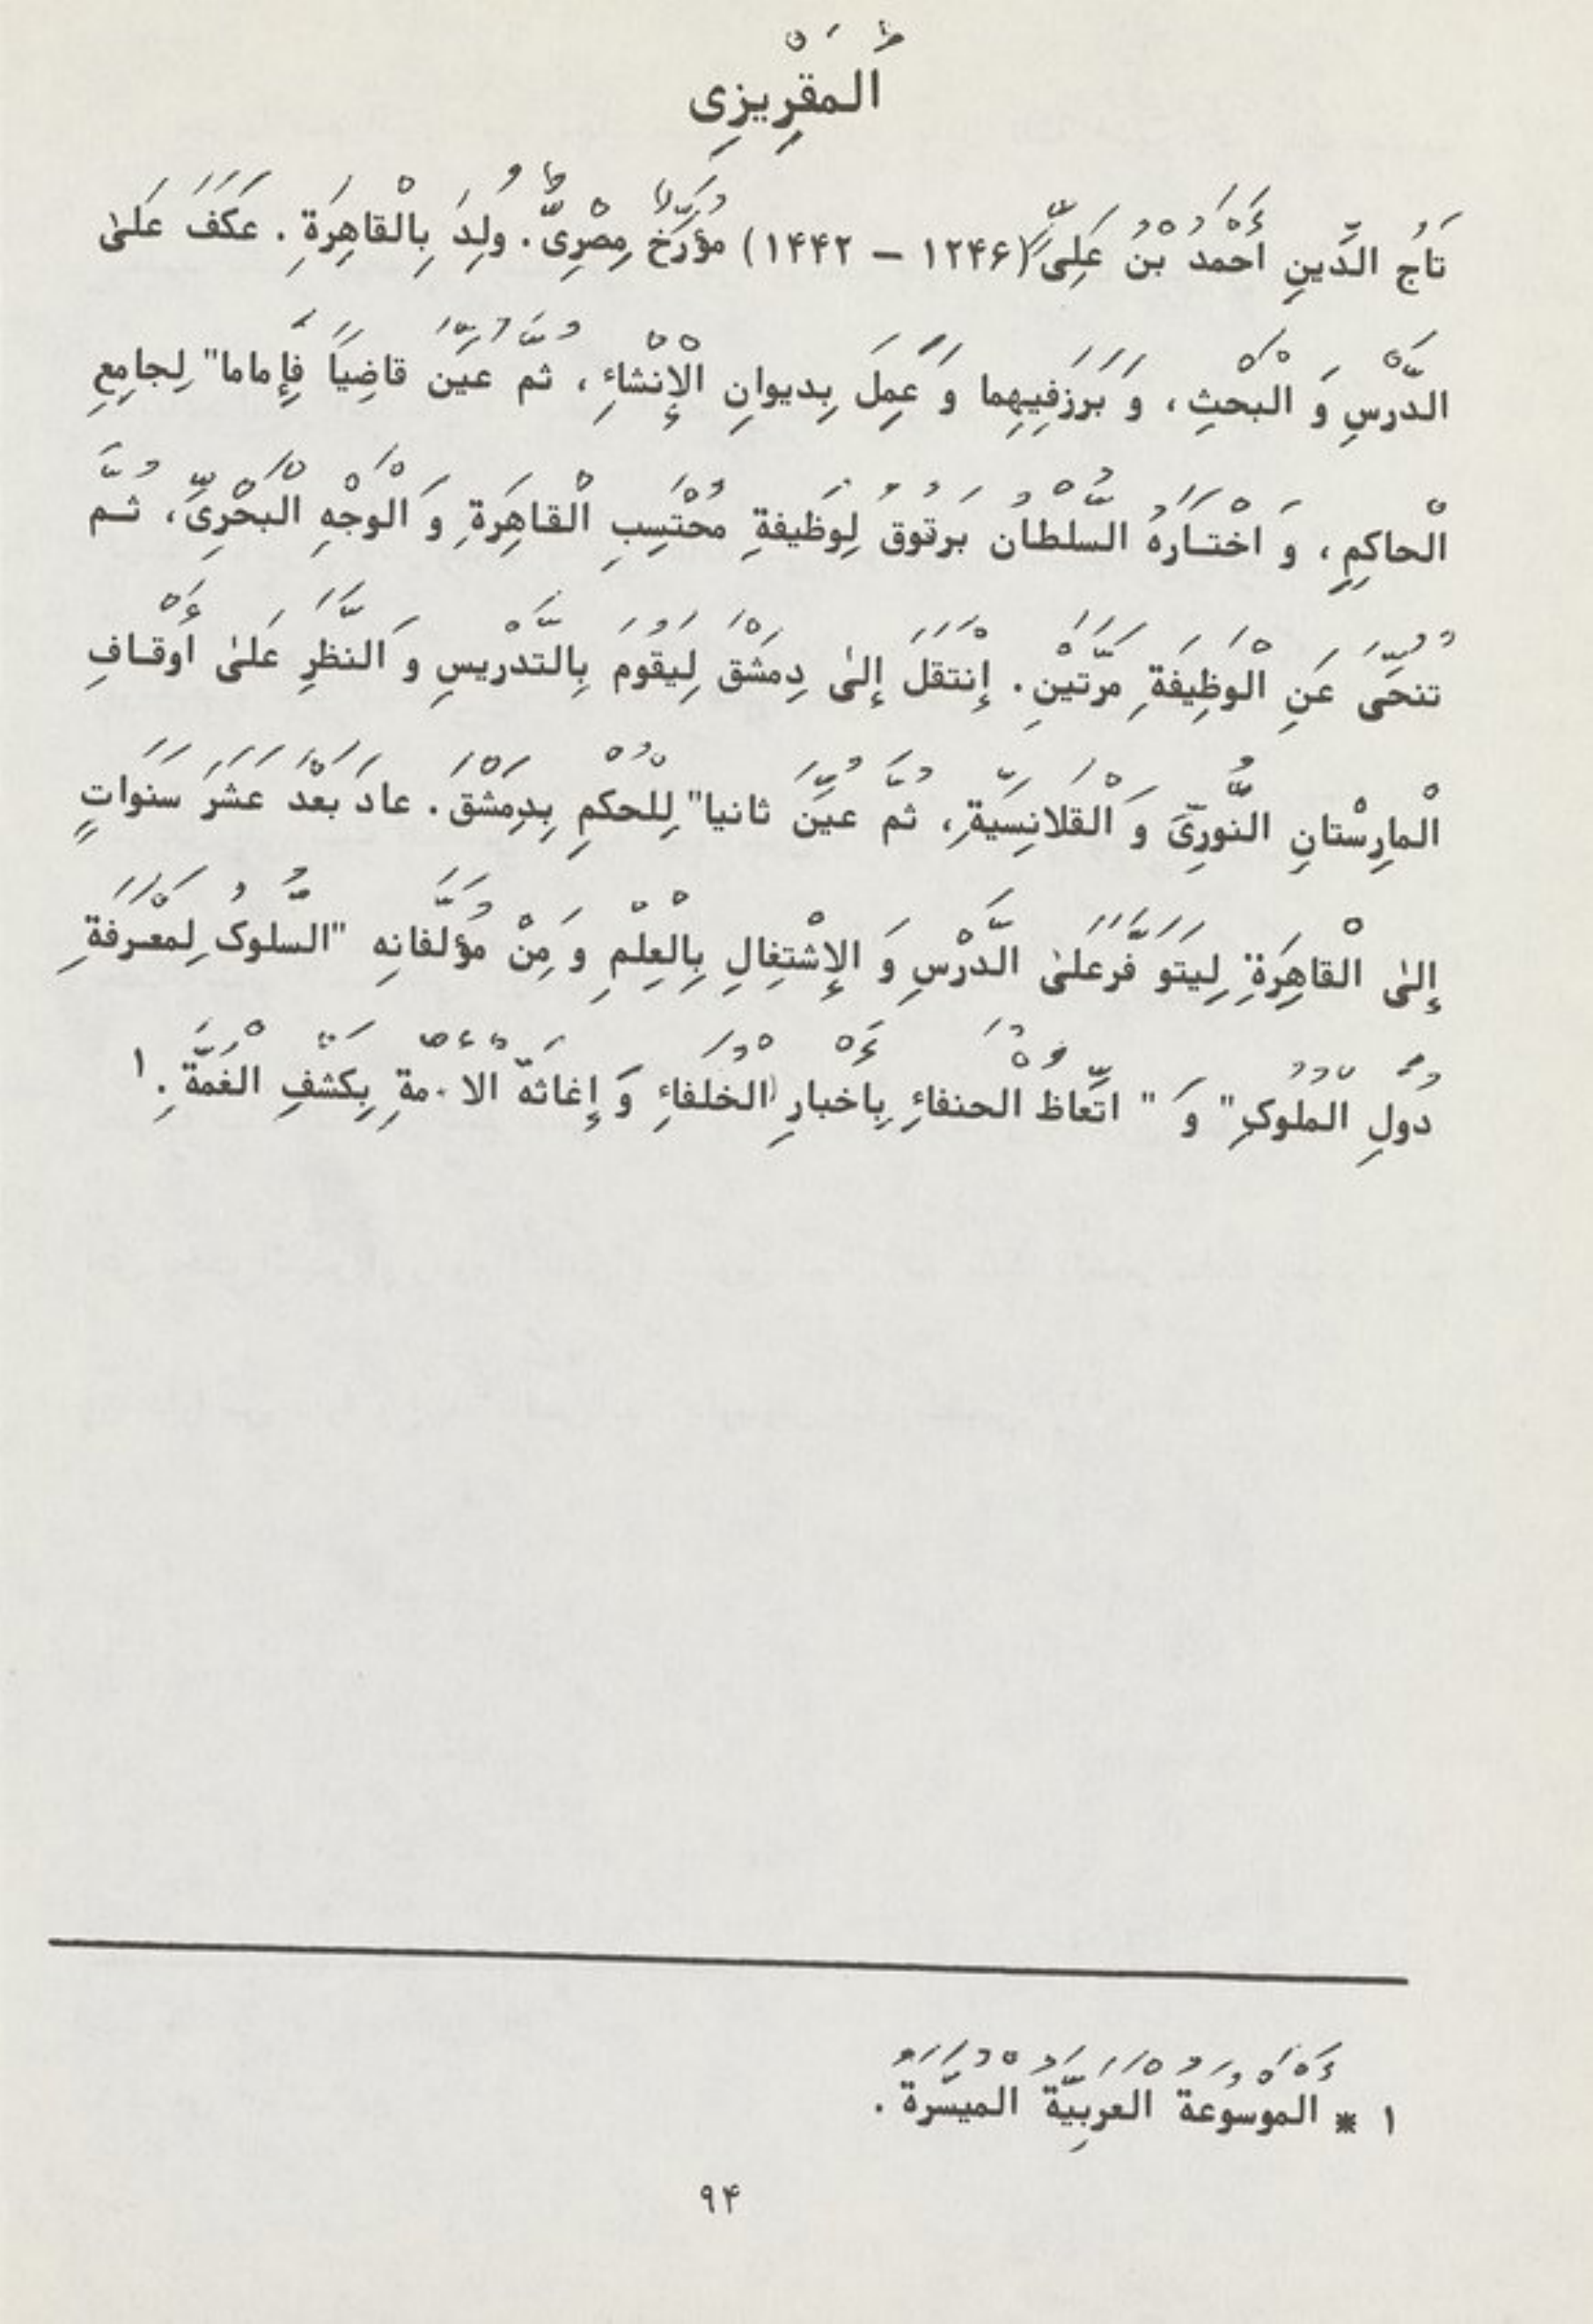 المَقْرِيزِی
تَاجُ الدِّينِ أَحْمَدُ بْنُ عَلِیٍّ (۱۲۴۶ – ۱۴۴۲) مُؤَرِّخٌ مِصْرِیٌّ. وُلِدَ بِالْقاهِرَةِ. عَكَفَ عَلَیٰ
الدَّرْسِ وَ الْبَحْثِ، وَ بَرَزَفِيهِما وَ عَمِلَ بِديوانِ الْإِنْشاءِ، ثُمَّ عُيِّنَ قاضِياً فَإِماما" لِجامِعِ
الْحاكِمِ، وَ اخْتارَهُ السُّلْطانُ بَرْقُوق لِوَظيفَةِ مُحْتَسِبِ الْقاهِرَةِ وَ الْوَجْهِ الْبَحْرِیِّ، ثُمَّ
تُنُحِّیَ عَنِ الْوَظِيفَةِ مَرَّتَيْنِ. إِنْتَقَلَ إِلیٰ دِمَشْقَ لِيَقُومَ بِالتَّدْريسِ وَ النَّظَرِ عَلیٰ أَوْقافِ
الْمارِسْتانِ النُّورِیِّ وَ الْقَلانِسِيَّةِ، ثُمَّ عُيِّنَ ثانيا" لِلْحُكْمِ بِدِمَشْقَ. عادَ بَعْدَ عَشَرَ سَنَواتٍ
إِلیٰ الْقاهِرَةِ لِيَتَوَ فَّرَعَلیٰ الدَّرْسِ وَ الْإِشْتِغالِ بِالْعِلْمِ وَ مِنْ مُؤَلَّفانِه "السُّلوک لِمَعْرَفَةِ
دُوَلِ الْمُلُوکِ" وَ " اتِّعاظُ الْحُنَفاءِ بِأَخْبارِ الْخُلَفاءِ وَ إِغاثَةُ الْأُمَّةِ بِكَشْفِ الْغُمَّةِ. ۱
۱ * الْمَوْسُوعَةُ الْعَرَبِيَّةُ الْمُيَسَّرَةُ.
۹۴